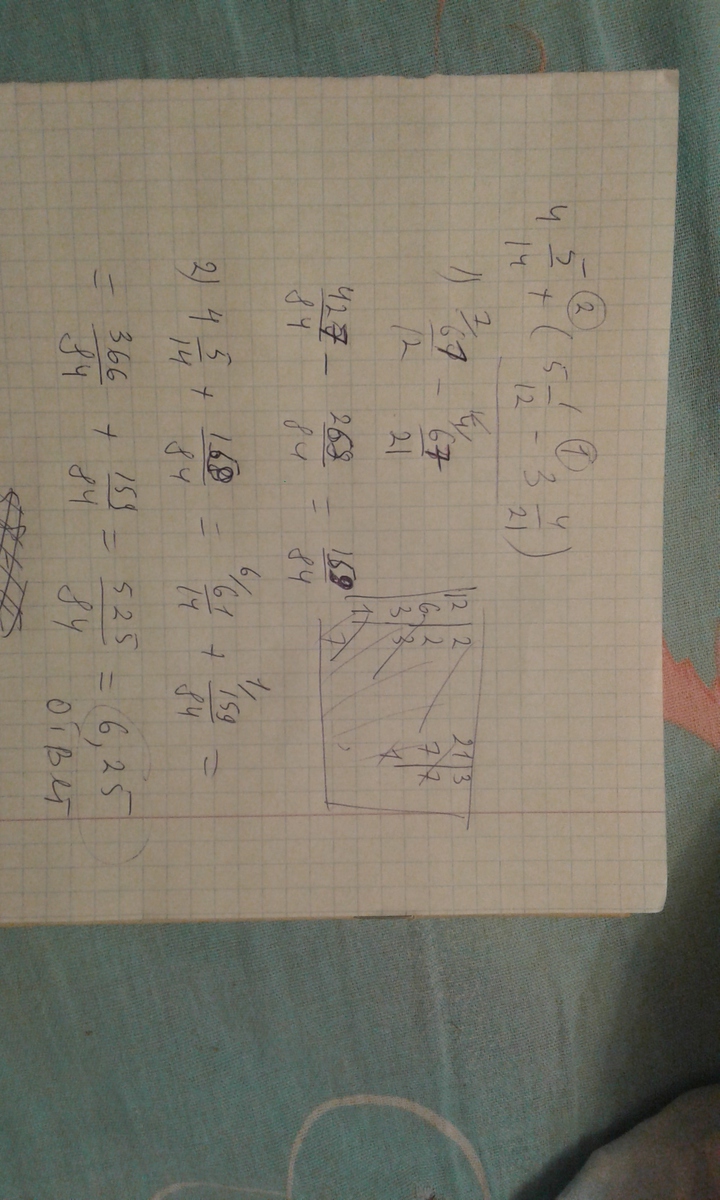 4 5/14 + ( 5 1/12 - 3 4/21 )
② ①
1) 61/12 - 67/21
7/ 4/
427/84 - 268/84 = 159/84
12 | 2
6 | 2
3 | 3
1
7
21 | 3
7 | 7
1
2) 4 5/14 + 159/84 = 61/14 + 159/84 =
6/ 1/
= 366/84 + 159/84 = 525/84 = 6,25